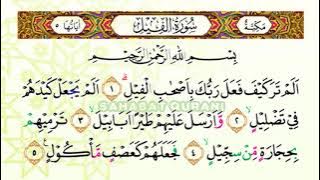 مَكِّيَّةٌ سُورَةُ الْفِيْلِ اٰيَاتُهَا ٥
بِسْمِ اللهِ الرَّحْمٰنِ الرَّحِيْمِ
اَلَمْ تَرَ كَيْفَ فَعَلَ رَبُّكَ بِاَصْحٰبِ الْفِيْلِۗ ١ اَلَمْ يَجْعَلْ كَيْدَهُمْ
فِيْ تَضْلِيْلٍۙ ٢ وَّاَرْسَلَ عَلَيْهِمْ طَيْرًا اَبَابِيْلَۙ ٣ تَرْمِيْهِمْ
بِحِجَارَةٍ مِّنْ سِجِّيْلٍۙ ٤ فَجَعَلَهُمْ كَعَصْفٍ مَّأْكُوْلٍ ٥